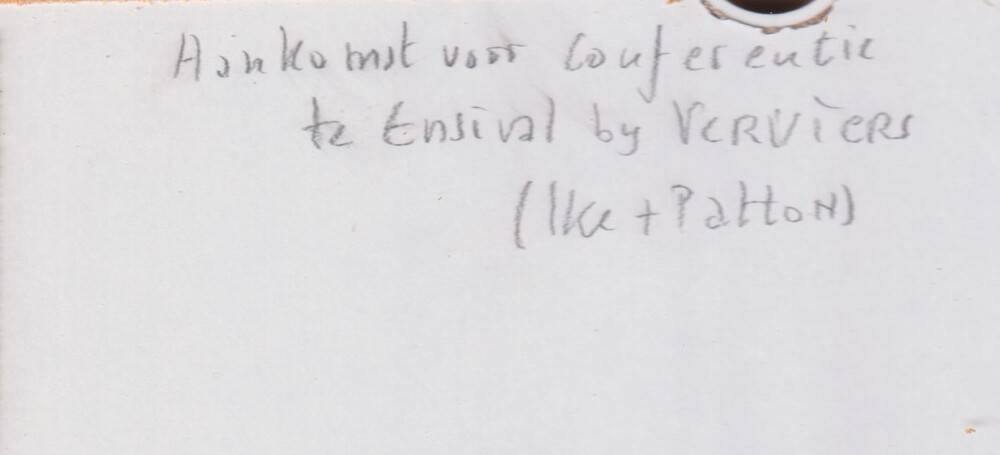 Aankomst voor Conferentie
te Ensival by VERVIERS
(Ike + PattoN)